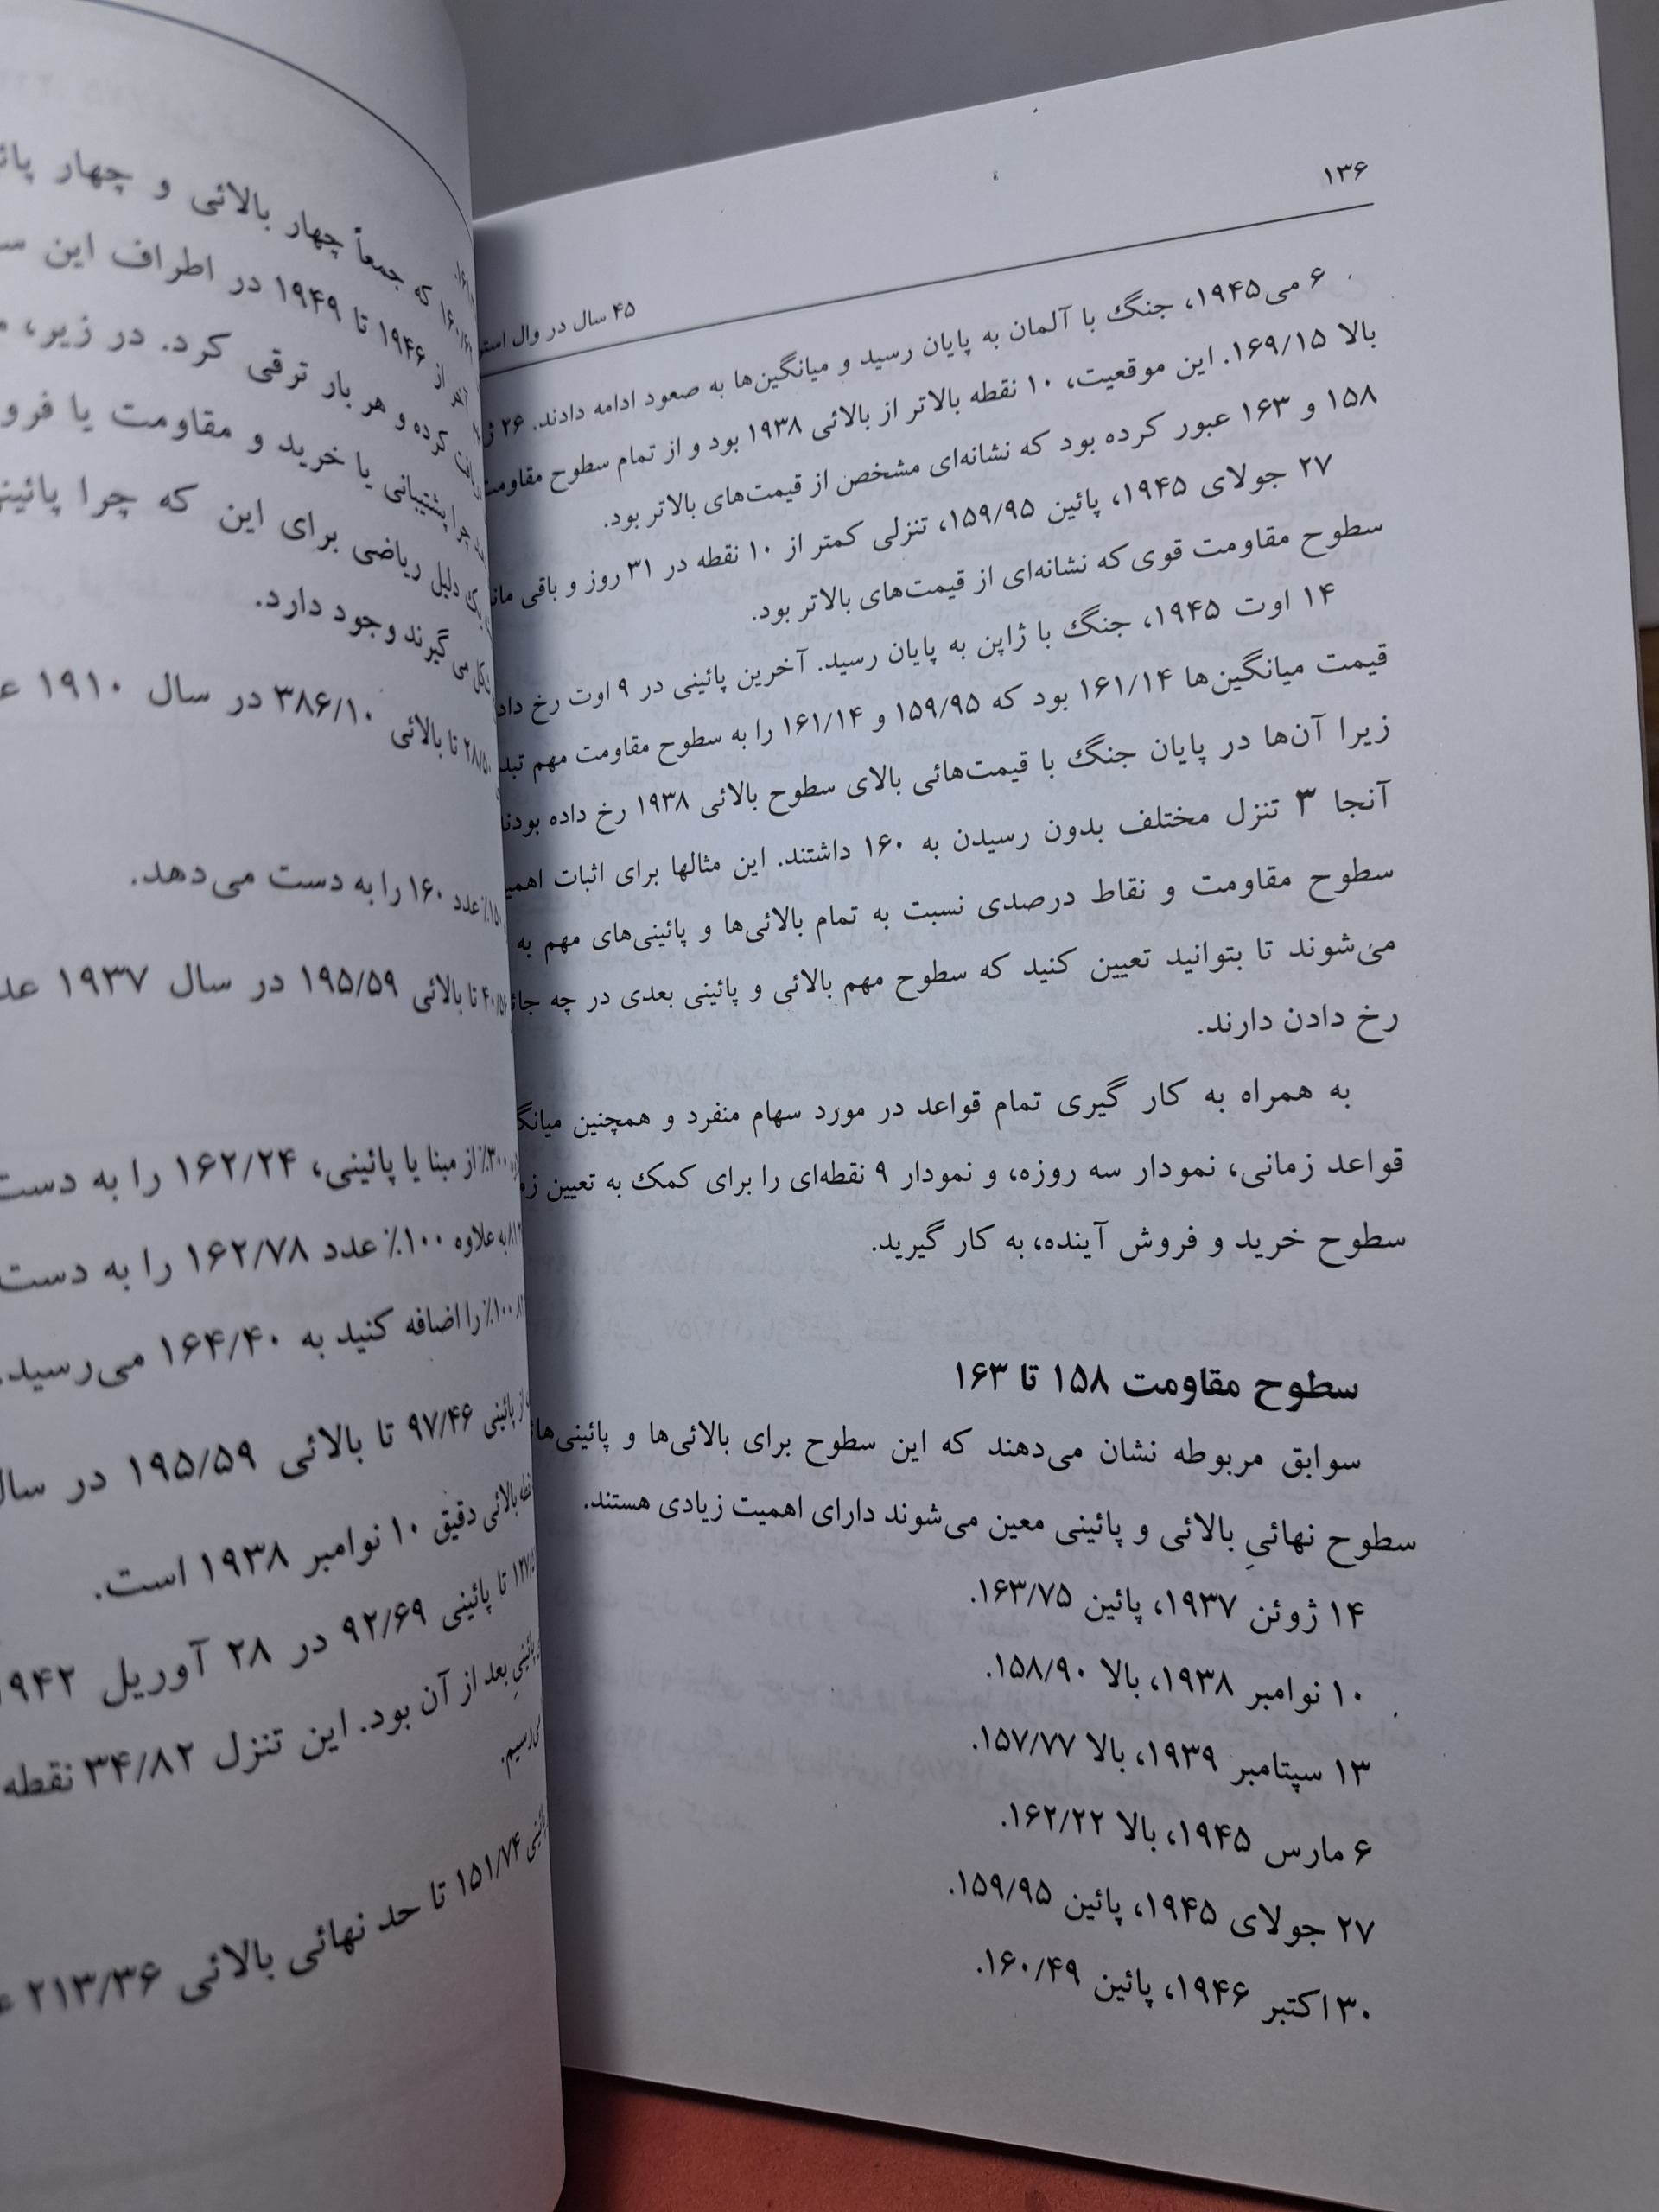 ۱۳۶
۴۵ سال در وال
۶ می ۱۹۴۵، جنگ با آلمان به پایان رسید و میانگین‌ها به صعود ادامه دادند. ۲۶
بالا ۱۶۹/۱۵. این موقعیت، ۱۰ نقطه بالاتر از بالائی ۱۹۳۸ بود و از تمام سطوح
۱۵۸ و ۱۶۳ عبور کرده بود که نشانه‌ای مشخص از قیمت‌های بالاتر بود.
۲۷ جولای ۱۹۴۵، پائین ۱۵۹/۹۵، تنزلی کمتر از ۱۰ نقطه در ۳۱ روز و باقی
سطوح مقاومت قوی که نشانه‌ای از قیمت‌های بالاتر بود.
۱۴ اوت ۱۹۴۵، جنگ با ژاپن به پایان رسید. آخرین پائینی در ۹ اوت رخ
قیمت میانگین‌ها ۱۶۱/۱۴ بود که ۱۵۹/۹۵ و ۱۶۱/۱۴ را به سطوح مقاومت مهم
زیرا آن‌ها در پایان جنگ با قیمت‌هائی بالای سطوح بالائی ۱۹۳۸ رخ داده
آنجا ۳ تنزل مختلف بدون رسیدن به ۱۶۰ داشتند. این مثالها برای اثبات
سطوح مقاومت و نقاط درصدی نسبت به تمام بالائی‌ها و پائینی‌های مهم به
می‌شوند تا بتوانید تعیین کنید که سطوح مهم بالائی و پائینی بعدی در چه
رخ دادن دارند.
به همراه به کار گیری تمام قواعد در مورد سهام منفرد و همچنین
قواعد زمانی، نمودار سه روزه، و نمودار ۹ نقطه‌ای را برای کمک به تعیین
سطوح خرید و فروش آینده، به کار گیرید.
سطوح مقاومت ۱۵۸ تا ۱۶۳
سوابق مربوطه نشان می‌دهند که این سطوح برای بالائی‌ها و
سطوح نهائیِ بالائی و پائینی معین می‌شوند دارای اهمیت زیادی هستند.
۱۴ ژوئن ۱۹۳۷، پائین ۱۶۳/۷۵.
۱۰ نوامبر ۱۹۳۸، بالا ۱۵۸/۹۰.
۱۳ سپتامبر ۱۹۳۹، بالا ۱۵۷/۷۷.
۶ مارس ۱۹۴۵، بالا ۱۶۲/۲۲.
۲۷ جولای ۱۹۴۵، پائین ۱۵۹/۹۵.
۳۰ اکتبر ۱۹۴۶، پائین ۱۶۰/۴۹.
که جمعاً چهار بالائی و چهار
از ۱۹۴۶ تا ۱۹۴۹ در اطراف این
کرده و هر بار ترقی کرد. در زیر،
چرا پشتیبانی یا خرید و مقاومت یا
دلیل ریاضی برای این که چرا
می‌گیرند وجود دارد.
تا بالائی ۳۸۶/۱۰ در سال ۱۹۱۰
عدد ۱۶۰ را به دست می‌دهد.
تا بالائی ۱۹۵/۵۹ در سال ۱۹۳۷
از مبنا یا پائینی، ۱۶۲/۲۴ را به
به علاوه ۱۰۰٪ عدد ۱۶۲/۷۸ را به دست
۱۰۰٪ را اضافه کنید به ۱۶۴/۴۰ می‌رسید.
از پائینی ۹۷/۴۶ تا بالائی ۱۹۵/۵۹ در
بالائی دقیق ۱۰ نوامبر ۱۹۳۸ است.
تا پائینی ۹۲/۶۹ در ۲۸ آوریل
بعد از آن بود. این تنزل ۳۴/۸۲ نقطه
می‌رسیم.
۱۵۱/۷۴ تا حد نهائی بالائی ۲۱۳/۳۶